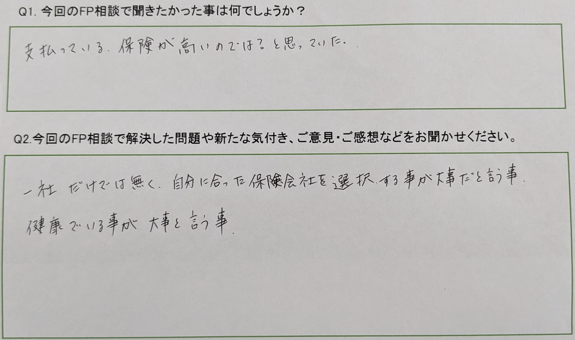 Q1. 今回のFP相談で聞きたかった事は何でしょうか？
支払っている、保険が高いのでは？と思っていた。
Q2.今回のFP相談で解決した問題や新たな気付き、ご意見・ご感想などをお聞かせください。
一社だけでは無く、自分に合った保険会社を選択する事が大事だと言う事。
健康でいる事が大事と言う事。